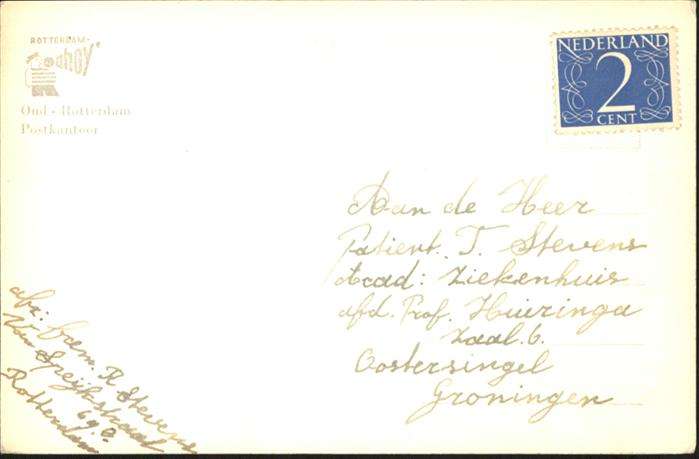 ROTTERDAM-
ahoy'
Oud-Rotterdam
Postkantoor
NEDERLAND
2
CENT
Aan de Heer
Patient. T. Stevens
Acad: Ziekenhuis
afd. Prof. Huizinga
Zaal. 6.
Oostersingel
Groningen
afz: fam. R. Stevens
Van Speijkstraat
Rotterdam